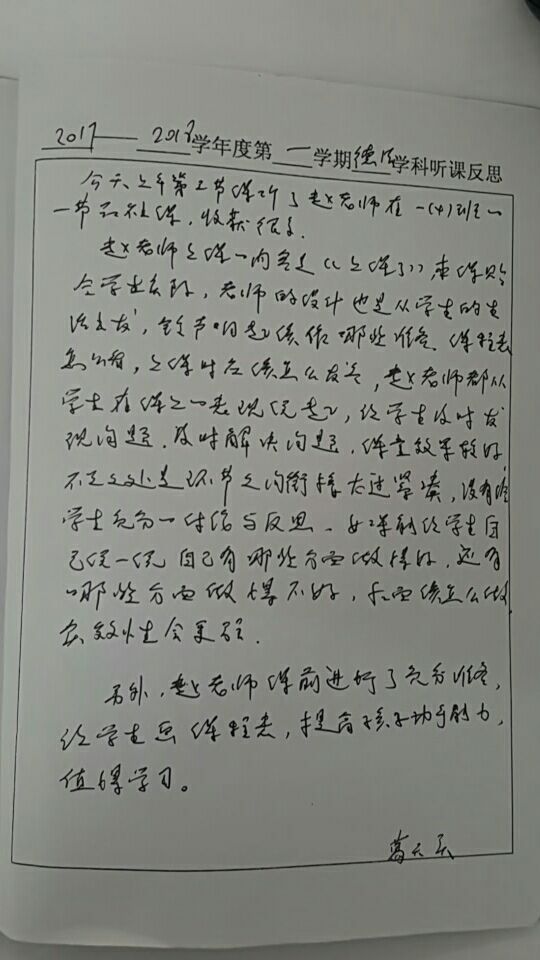 2017——2018学年度第一学期德法学科听课反思
今天上午第二节课听了赵老师在一(4)班一
一节品社课，收获很多.
赵老师上课一内容是《上课了》，本课贴
合学生实际，老师的设计也是从学生的生
活出发，铃声响起该做哪些准备.课程表
怎么看，上课时应该怎么发言，赵老师都从
学生在课上一表现说起，给学生及时发
现问题.及时解决问题.课堂效果较好.
不足之处是环节之间衔接太过紧凑，没有给
学生充分一讨论与反思.
学生自
己说一说自己有哪些方面做得好.还有
哪些方面做得不好，后面该怎么做
实效性会更强.
另外，赵老师课前进行了充分准备，
给学生画课程表，提高孩子动手能力，
值得学习。